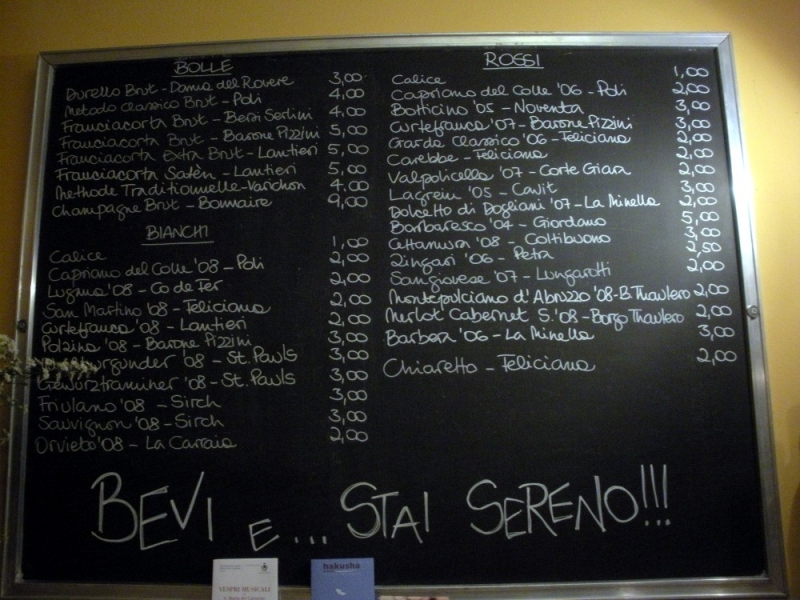 BOLLE
Durello Brut - Dama del Rovere 3,00
Metodo Classico Brut - Poli 4,00
Franciacorta Brut - Bersi Serlini 4,00
Franciacorta Brut - Barone Pizzini 5,00
Franciacorta Extra Brut - Lantieri 5,00
Franciacorta Satèn - Lantieri 5,00
Methode Traditionnelle - Varichon 4,00
Champagne Brut - Bonnaire 9,00
BIANCHI
Calice 1,00
Capriano del Colle '08 - Poli 2,00
Lugana '08 - Co de Fer 2,00
San Martino '08 - Feliciana 2,00
Curtefranca '08 - Lantieri 2,00
Polzina '08 - Barone Pizzini 2,00
'08 - St. Pauls 3,00
Gewürztraminer '08 - St. Pauls 3,00
Friulano '08 - Sirch 3,00
Sauvignon '08 - Sirch 3,00
Orvieto '08 - La Carraia 2,00
ROSSI
Calice 1,00
Capriano del Colle '06 - Poli 2,00
Botticino '05 - Noventa 3,00
Curtefranca '07 - Barone Pizzini 3,00
Garda Classico '06 - Feliciana 2,00
Carebbe - Feliciana 2,00
Valpolicella '07 - Corte Giara 2,00
Lagrein '05 - Cavit 3,00
Dolcetto di Dogliani '07 - La Minella 2,00
Barbaresco '04 - Giordano 5,00
Cettamura '08 - Coltibuono 3,00
Zingari '06 - Petra 2,50
Sangiovese '07 - Lungarotti 2,00
Montepulciano d'Abruzzo '08 - B. Thaulero 2,00
Merlot Cabernet S. '08 - Borgo Thaulero 2,00
Barbera '06 - La Minella 3,00
Chiaretto - Feliciana 2,00
BEVI E... STAI SERENO!!!
VESPRI MUSICALI
hakusha